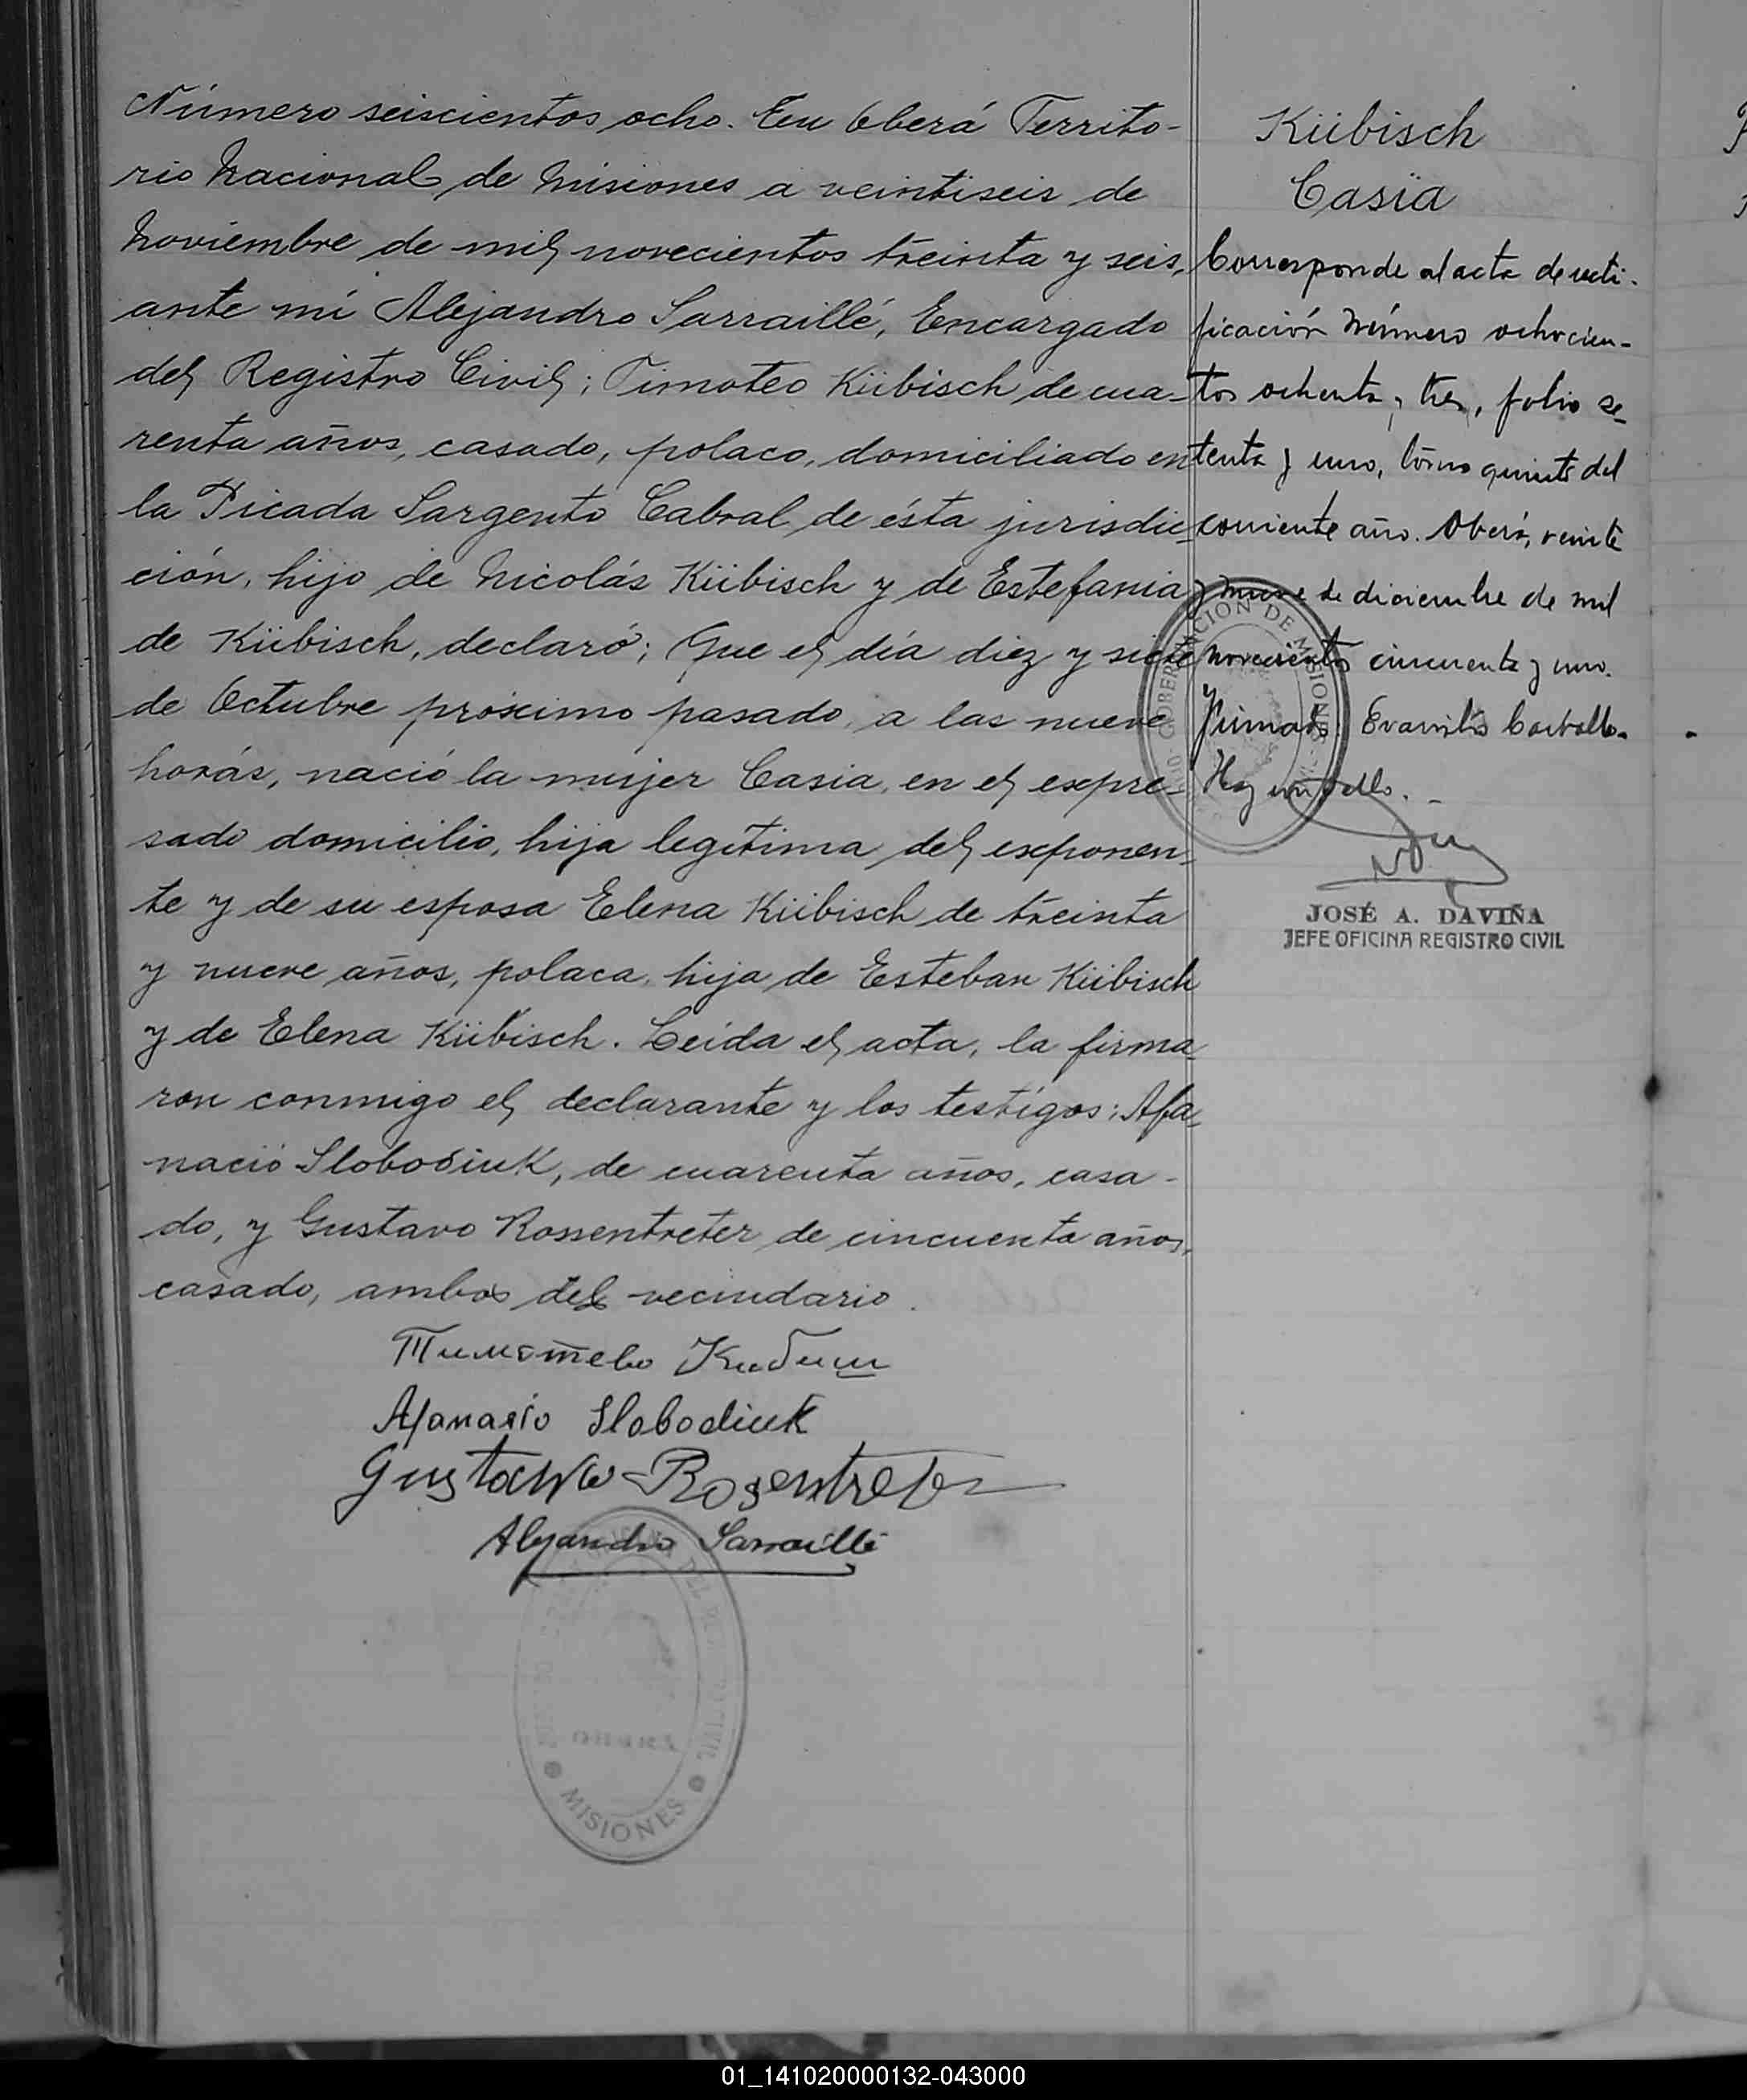 Número seiscientos ocho. En Oberá Territo-
rio Nacional de Misiones a veintiseis de
Noviembre de mil novecientos treinta y seis,
ante mí Alejandro Sarraillé, Encargado
del Registro Civil; Timoteo Kübisch de cua-
renta años, casado, polaco, domiciliado en
la Picada Sargento Cabral de ésta jurisdic-
ción, hijo de Nicolás Kübisch y de Estefania
de Kübisch, declaró; Que el día diez y siete
de Octubre próximo pasado, a las nueve
horás, nació la mujer Casia, en el expre-
sado domicilio, hija legítima del exponen-
te y de su esposa Elena Kübisch de treinta
y nueve años, polaca, hija de Esteban Kübisch
y de Elena Kübisch. Leída el acta, la firma-
ron conmigo el declarante y los testigos: Afa-
nacio Slobodiuk, de cuarenta años, casa-
do, y Gustavo Rossentreter de cincuenta años,
casado, ambos del vecindario.
Тимотево Кибиш
Afanasio Slobodiuk
Gustavo Rosentreter
Alejandro Sarraillé
MISIONES
Kübisch
Casia
Corresponde al acta de recti-
ficación Número ochocien-
tos ochenta y tres, folio se-
tenta y uno, tomo quinto del
corriente año. Oberá, veinte
y nueve de diciembre de mil
novecientos cincuenta y uno.
Firmado: Evaristo Carballo.
Hay un sello.
GOBERNACION DE MISIONES
JOSÉ A. DAVIÑA
JEFE OFICINA REGISTRO CIVIL
01_141020000132-043000